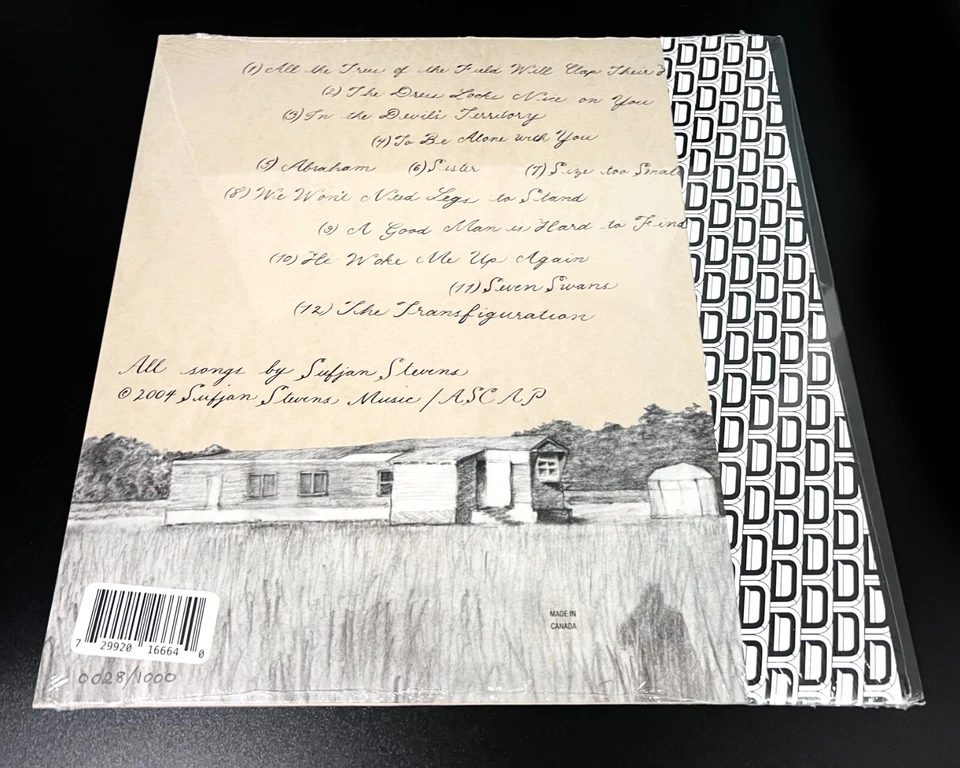 (1) All the Trees of the Field Will Clap Their
(2) The Dress Looks Nice on You
(3) In the Devil's Territory
(4) To Be Alone with You
(5) Abraham (6) Sister (7) Size too Small
(8) We Won't Need Legs to Stand
(9) A Good Man is Hard to Find
(10) He Woke Me Up Again
(11) Seven Swans
(12) The Transfiguration
All songs by Sufjan Stevens
© 2004 Sufjan Stevens Music / ASCAP
MADE IN
CANADA
7 29920 16664 0
0028/1000